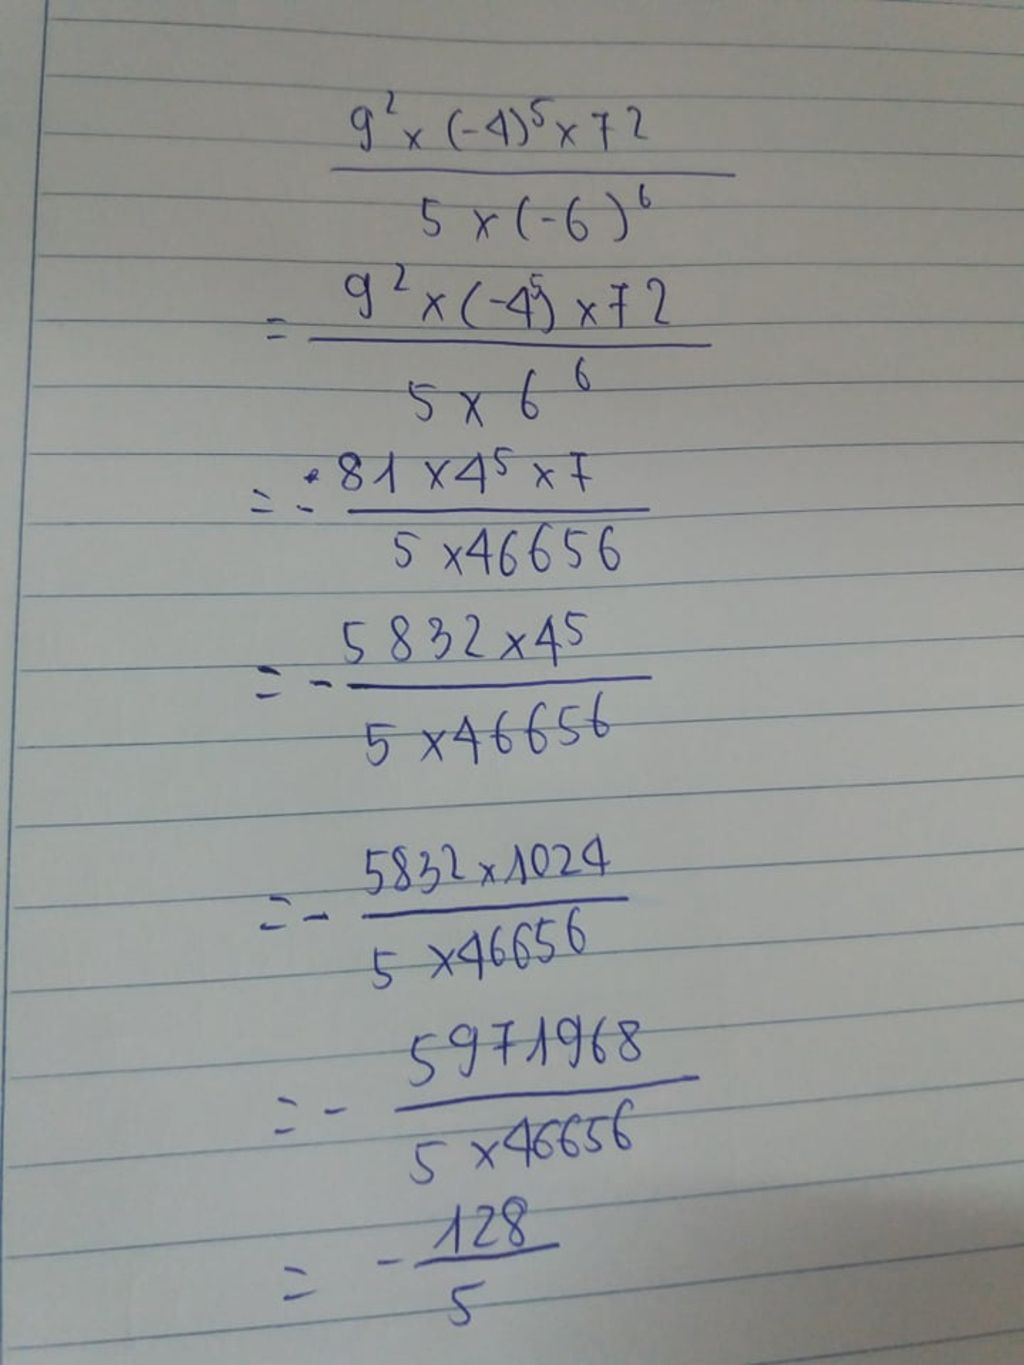 9² × (-4)⁵ × 72
5 × (-6)⁶
= 9² × (-4⁵) × 72
5 × 6⁶
= - 81 × 4⁵ × 7
5 × 46656
= - 5832 × 4⁵
5 × 46656
= - 5832 × 1024
5 × 46656
= - 5971968
5 × 46656
= - 128
5